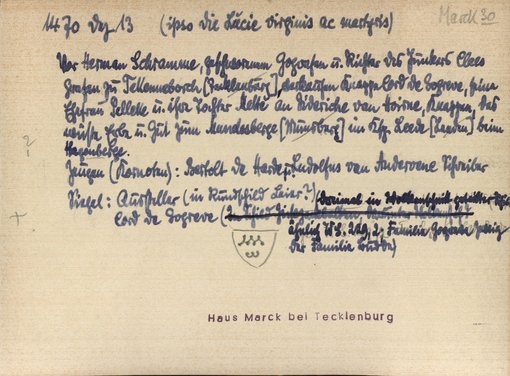 1470 Dez 13 (ipso die Lücie virginis ac martyris) Marck 30
Vor Herman Schramme, geschworenem Gografen u. Richter des Junkers Claes
Grafen zu Tekeneborch [Tecklenburg], verkaufen Knappe Cord de Gogreve, seine
Ehefrau Pelleke u. ihre Tochter Kelte an Dideriche van Horne, Knappen, das
wüste Erbe u. Gut zum Mundesberge [Mundsberg] im Ksp. Leede [Leeden] beim
Hagenberge.
Zeugen (Kornoten): Bertolt de Harde, Ludolfus van Andervene Schriber
Siegel: Aussteller (im Rundschild Leier?) (dreimal in Wolkenschnitt geteilter
Cord de Gogreve (
ähnlich W.S. 229, 2, Familie Gogreve Zweig
der Familie Budde)
Haus Marck bei Tecklenburg